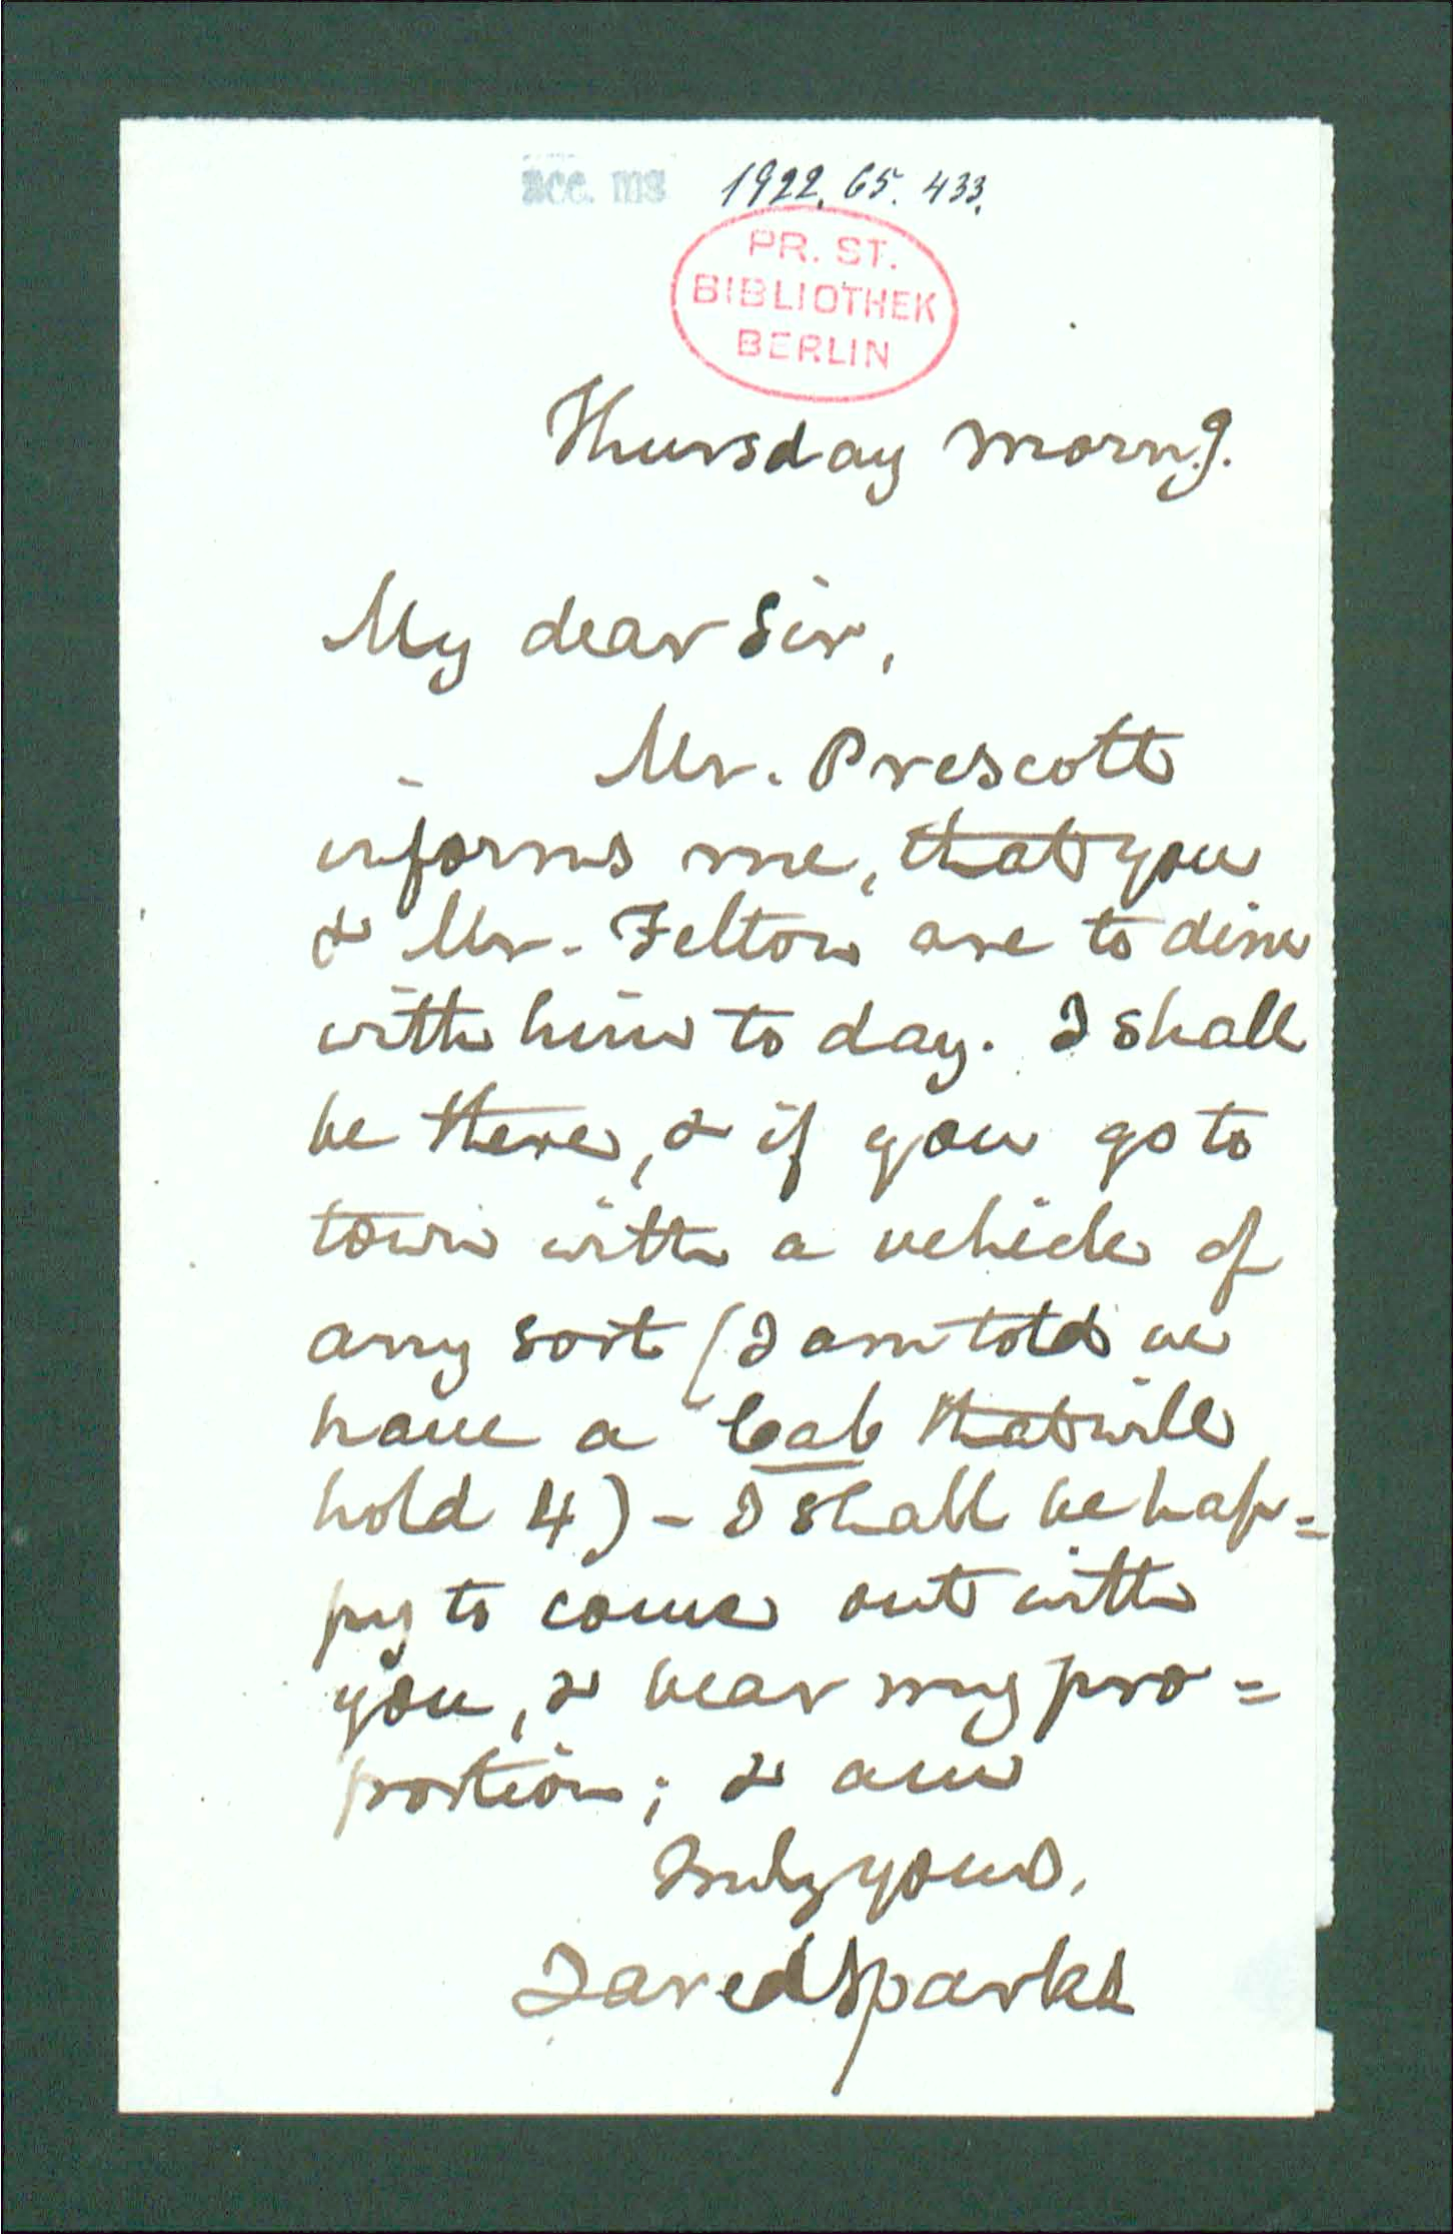 acc. ms 1922. 65. 433.
PR. ST.
BIBLIOTHEK
BERLIN
Thursday morng.
My dear Sir,
Mr. Prescott
informs me, that you
& Mr. Felton are to dine
with him to day. I shall
be there, & if you go to
town with a vehicle of
any sort (I am told we
have a Cab that will
hold 4) – I shall be hap=
py to come out with
you, & bear my pro=
portion; & am
Truly yours,
Jared Sparks